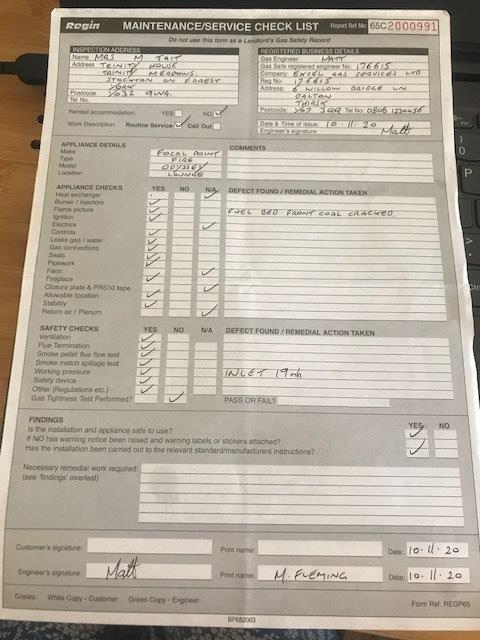 Regin MAINTENANCE/SERVICE CHECK LIST Report Ref No: 65C2000991
Do not use this form as a Landlord's Gas Safety Record
INSPECTION ADDRESS
Name MRS M TAIT
Address TRINITY HOUSE
TRINITY MEADOWS
STOCKTON ON FOREST
YORK
Postcode YO32 9WA
Tel No.
Rented accommodation: YES NO
Work Description: Routine Service Call Out
REGISTERED BUSINESS DETAILS
Gas Engineer: MATT
Gas Safe registered engineer No: 176615
Company: EXCEL GAS SERVICES LTD
Reg No: 176615
Address: 6 WILLOW BRIDGE LN
DALTON
THIRSK
Postcode: YO7 3QQ Tel No: 0808 1234456
Date & Time of issue: 10-11-20
Engineer's signature: Matt
APPLIANCE DETAILS
Make FOCAL POINT
Type FIRE
Model ODYSSEY
Location LOUNGE
COMMENTS
APPLIANCE CHECKS YES NO N/A DEFECT FOUND / REMEDIAL ACTION TAKEN
Heat exchanger
Burner / Injectors
Flame picture FUEL BED FRONT COAL CRACKED.
Ignition
Electrics
Controls
Leaks gas / water
Gas connections
Seals
Pipework
Fans
Fireplace
Closure plate & PRS10 tape
Allowable location
Stability
Return air / Plenum
SAFETY CHECKS YES NO N/A DEFECT FOUND / REMEDIAL ACTION TAKEN
Ventilation
Flue Termination
Smoke pellet flue flow test
Smoke match spillage test
Working pressure INLET 19mb
Safety device
Other (Regulations etc.)
Gas Tightness Test Performed? PASS OR FAIL?
FINDINGS
YES NO
Is the installation and appliance safe to use?
If NO has warning notice been raised and warning labels or stickers attached?
Has the installation been carried out to the relevant standard/manufacturers instructions?
Necessary remedial work required:
(see 'findings' overleaf)
Customer's signature: Print name: Date: 10-11-20
Engineer's signature: Matt Print name: M. FLEMING Date: 10-11-20
Copies: White Copy - Customer Green Copy - Engineer Form Ref: REGP65
BF652003